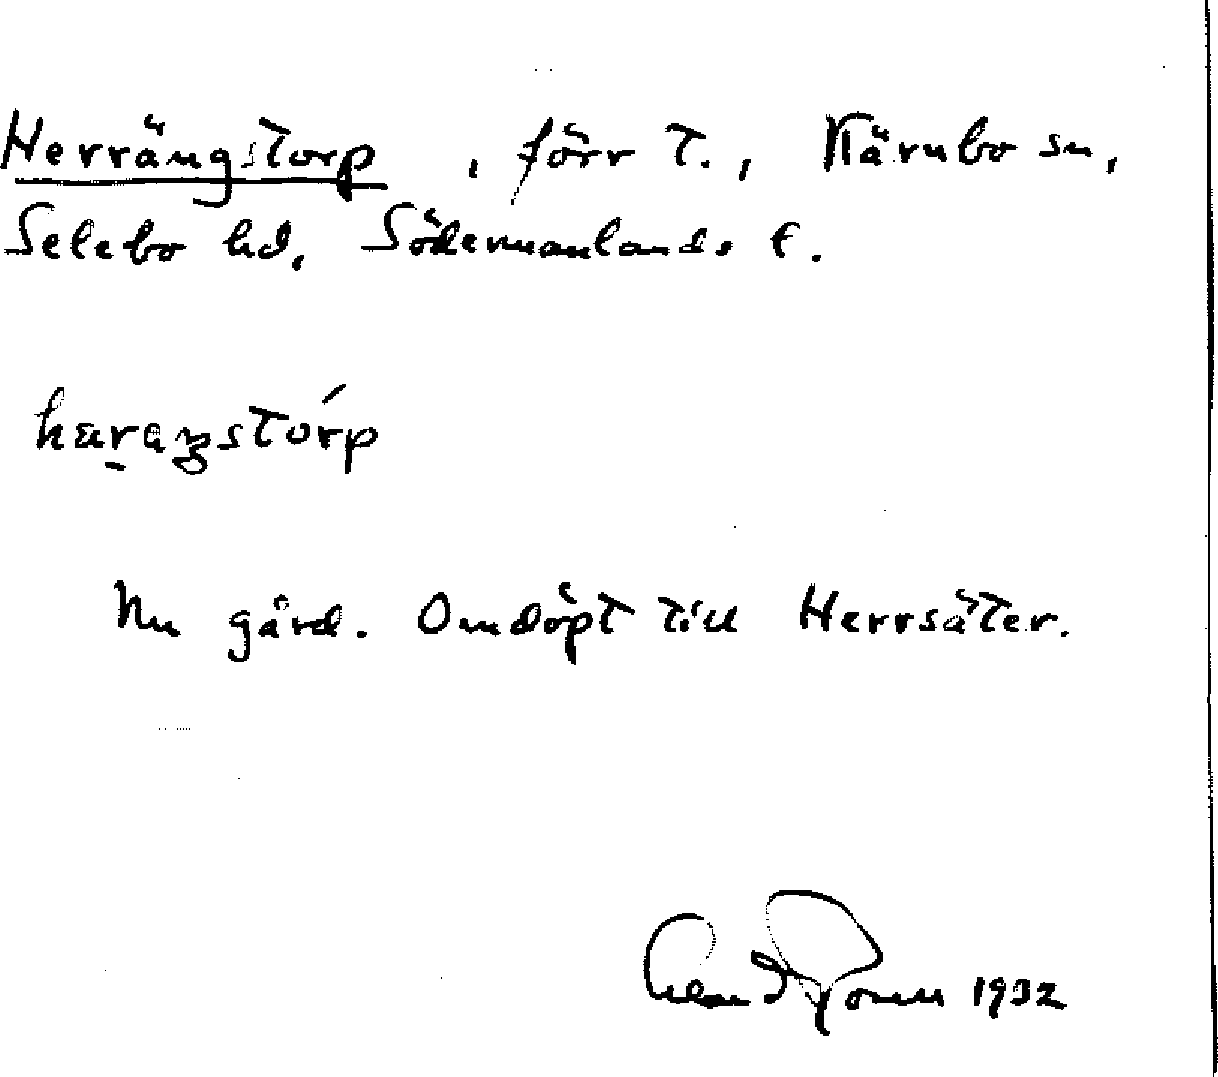 Herrängstorp, förr t., Kärnbo sn,
Selebo hd, Södermanlands l.
Nu gård. Omdöpt till Herrsäter.
1932